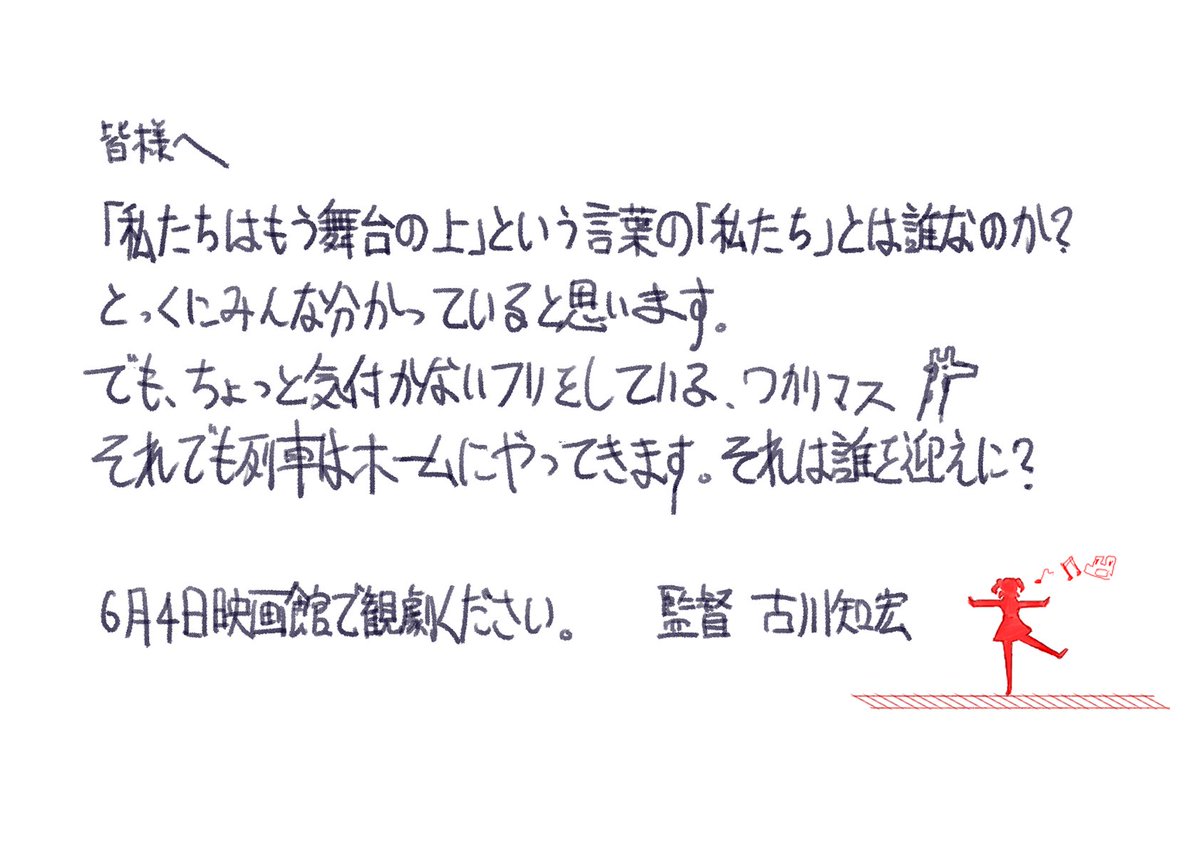 皆様へ
「私たちはもう舞台の上」という言葉の「私たち」とは誰なのか?
とっくにみんな分かっていると思います。
でも、ちょっと気付かないフリをしている、ワカリマス
それでも列車はホームにやってきます。それは誰を迎えに?
6月4日映画館で観劇ください。 監督 古川知宏